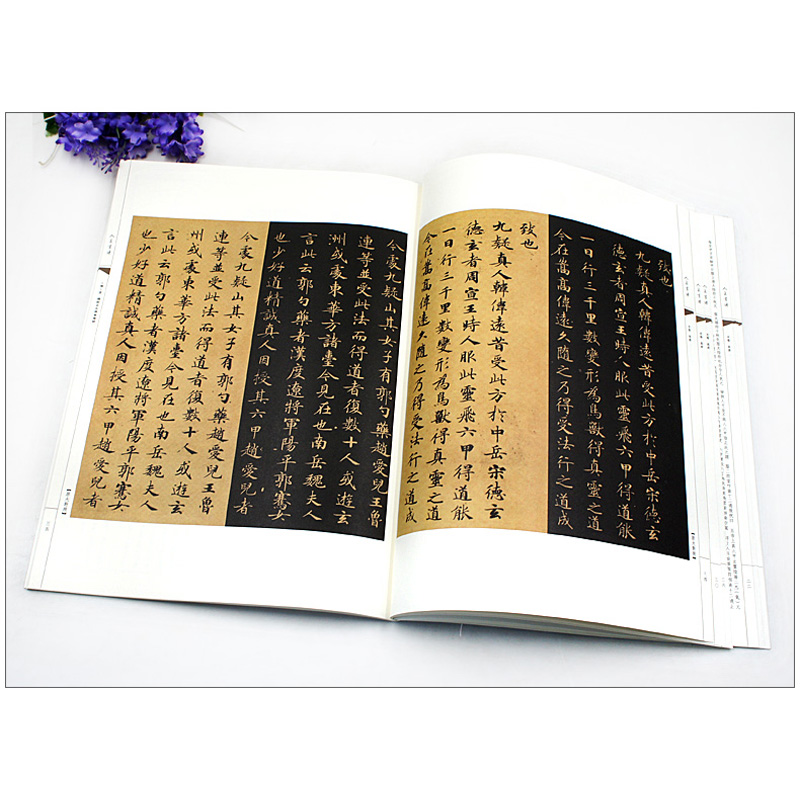 致也
九疑真人韓偉遠昔受此方於中岳宋德玄
德玄者周宣王時人服此靈飛六甲得道能
一日行三千里數變形為鳥獸得真靈之道
今在嵩高偉遠久隨之乃得受法行之道成
致也
九疑真人韓偉遠昔受此方於中岳宋德玄
德玄者周宣王時人服此靈飛六甲得道能
一日行三千里數變形為鳥獸得真靈之道
今在嵩高偉遠久隨之乃得受法行之道成
今處九疑山其女子有郭勺藥趙愛兒王魯
連等並受此法而得道者復數十人或遊玄
州或處東華方諸臺今見在也南岳魏夫人
言此云郭勺藥者漢度遼將軍陽平郭騫女
也少好道精誠真人因授其六甲趙愛兒者
今處九疑山其女子有郭勺藥趙愛兒王魯
連等並受此法而得道者復數十人或遊玄
州或處東華方諸臺今見在也南岳魏夫人
言此云郭勺藥者漢度遼將軍陽平郭騫女
也少好道精誠真人因授其六甲趙愛兒者